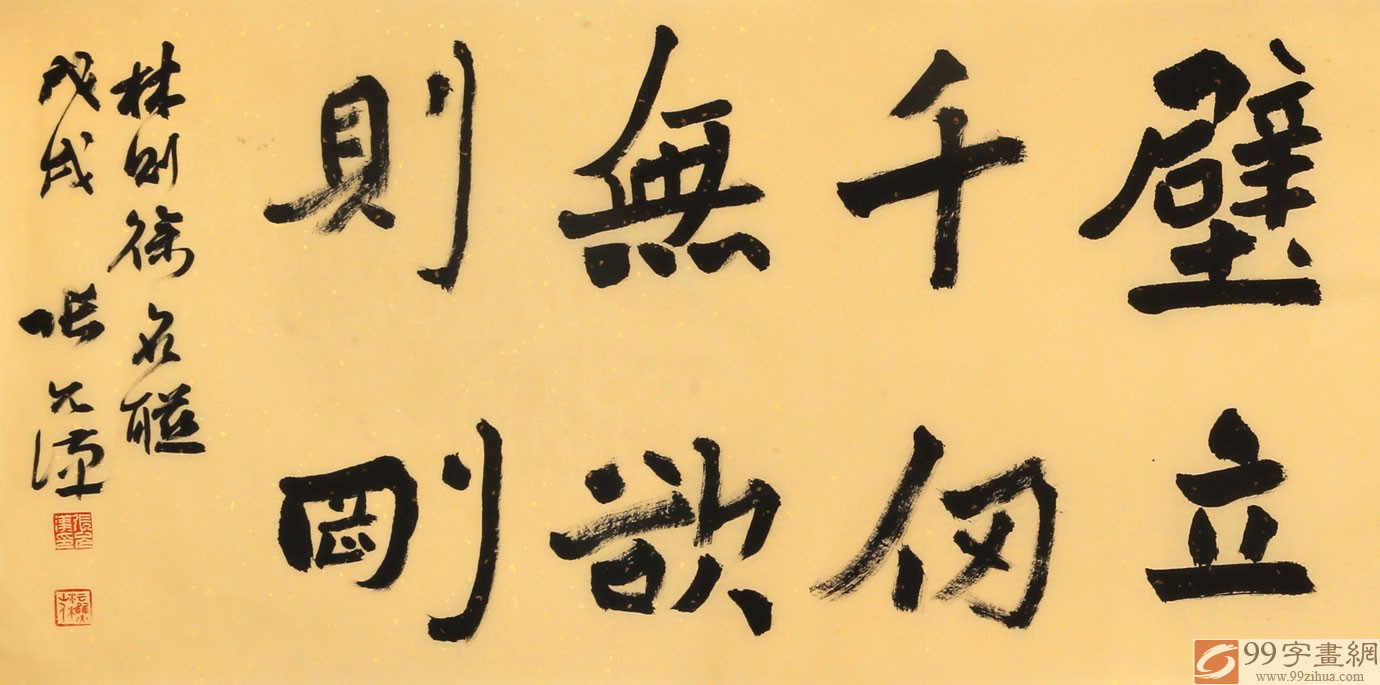 壁立
千仞
無欲
則剛
林則徐名聯
戊戌 張
99字畫網
www.99zihua.com